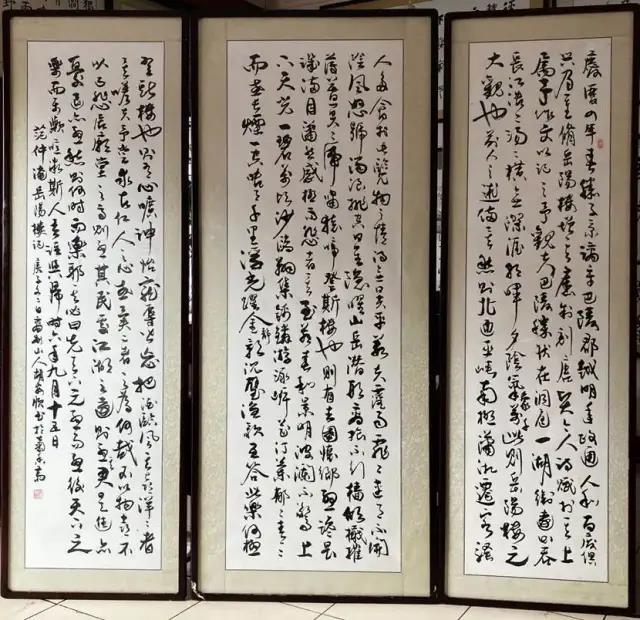 慶曆四年春滕子京謫守巴陵郡越明年政通人和百廢俱
興乃重脩岳陽樓增其舊制刻唐賢今人詩賦於其上
屬予作文以記之予觀夫巴陵勝狀在洞庭一湖銜遠山吞
長江浩浩湯湯橫無際涯朝暉夕陰氣象萬千此則岳陽樓之
大觀也前人之述備矣然則北通巫峽南極瀟湘遷客騷
人多會於此覽物之情得無異乎若夫霪雨霏霏連月不開
陰風怒號濁浪排空日星隱曜山岳潛形商旅不行檣傾檝摧
薄暮冥冥虎嘯猿啼登斯樓也則有去國懷鄉憂讒畏
譏滿目蕭然感極而悲者矣至若春和景明波瀾不驚上
下天光一碧萬頃沙鷗翔集錦鱗游泳岸芷汀蘭郁郁青青
而或長煙一空皓月千里浮光躍金靜影沉璧漁歌互答此樂何極
登斯樓也則有心曠神怡寵辱皆忘把酒臨風其喜洋洋者
矣嗟夫予嘗求古仁人之心或異二者之為何哉不以物喜不
以己悲居廟堂之高則憂其民處江湖之遠則憂其君是進亦
憂退亦憂然則何時而樂耶其必曰先天下之憂而憂後天下之
樂而樂歟噫微斯人吾誰與歸時六年九月十五日
范仲淹岳陽樓記